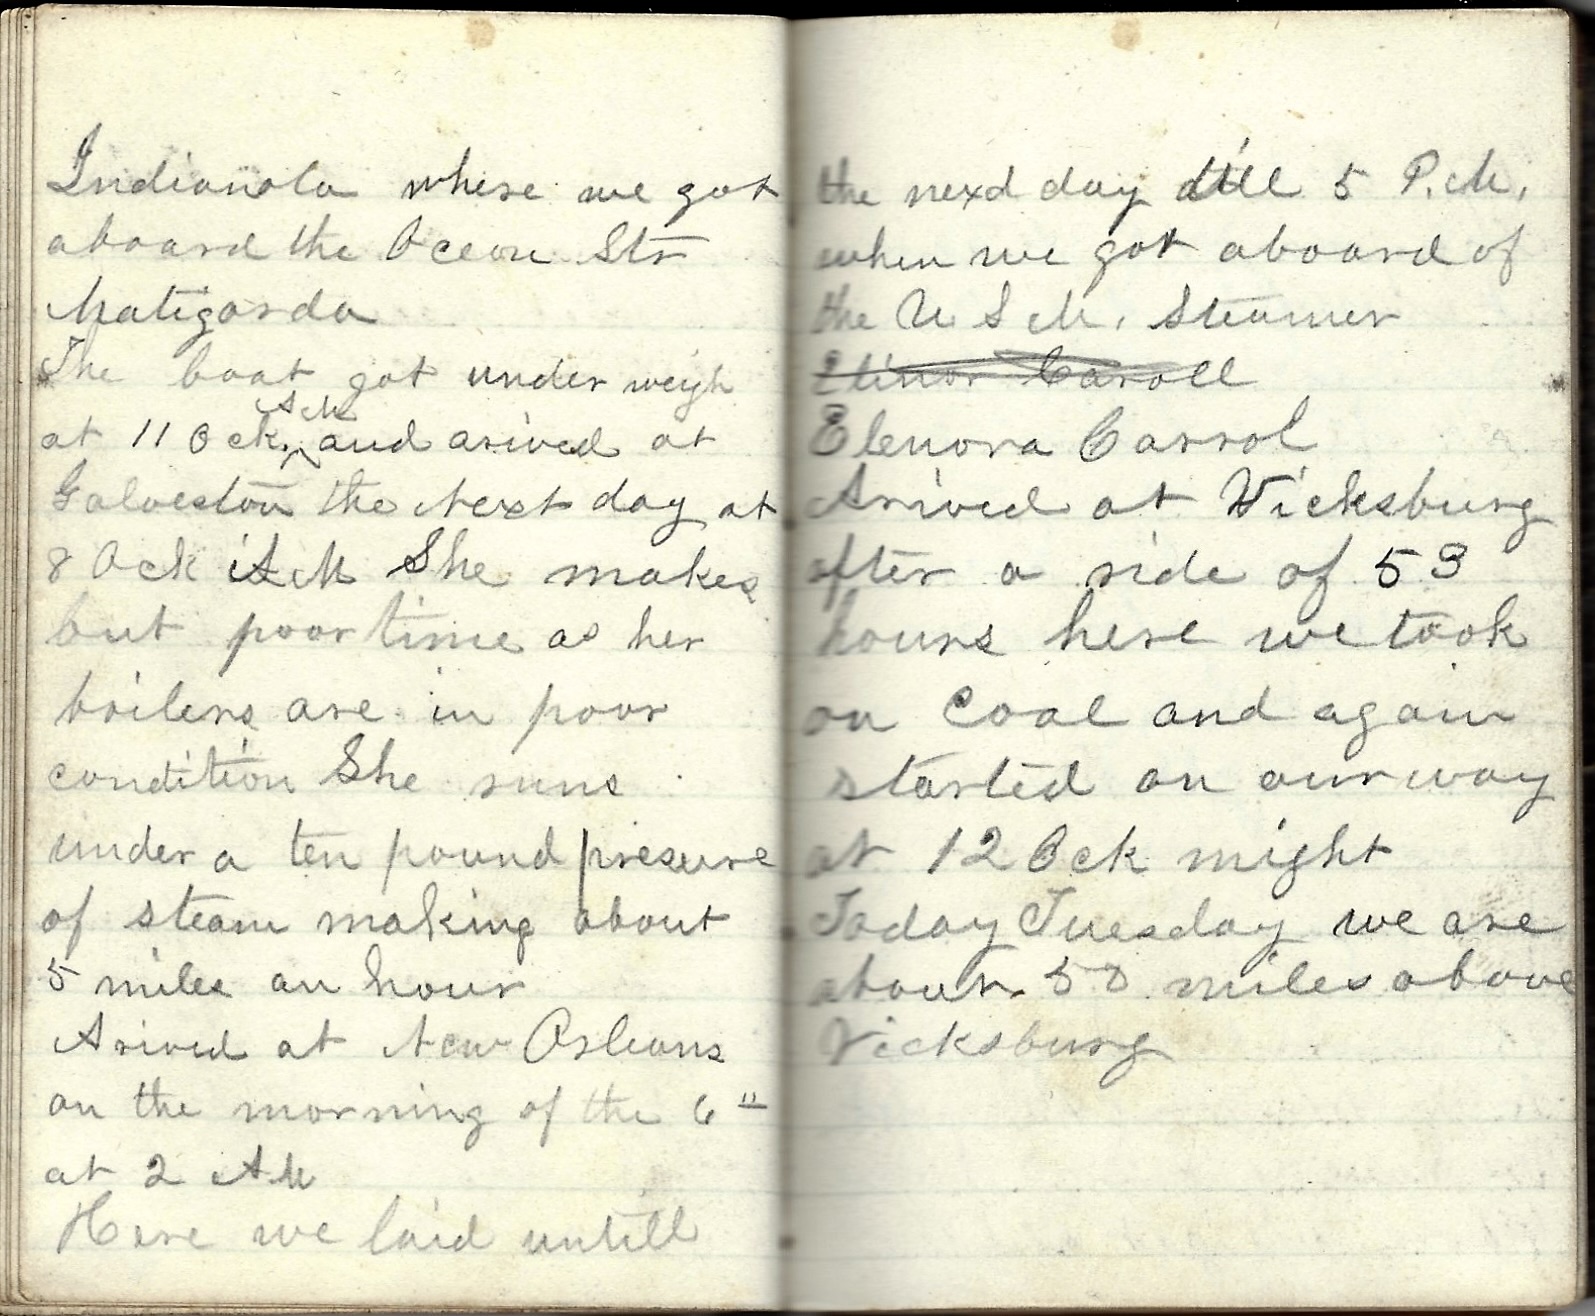 Indianola where we got
aboard the Ocean Str
Matigorda
The boat got under weigh
at 11 Ock, AM and arived at
Galveston the Next day at
8 Ock AM She makes
but poor time as her
boilers are in poor
condition She runs
under a ten pound presure
of steam making about
5 miles an hour
Arived at New Orleans
on the morning of the 6"
at 2 AM
Here we laid untill
the next day till 5 P.M.
when we got aboard of
the U S M. Steamer
Elinor Caroll
Elenora Carrol
Arived at Vicksburg
after a ride of 53
hours here we took
on Coal and again
started on our way
at 12 Ock night
Today Tuesday we are
about 50 miles above
Vicksburg